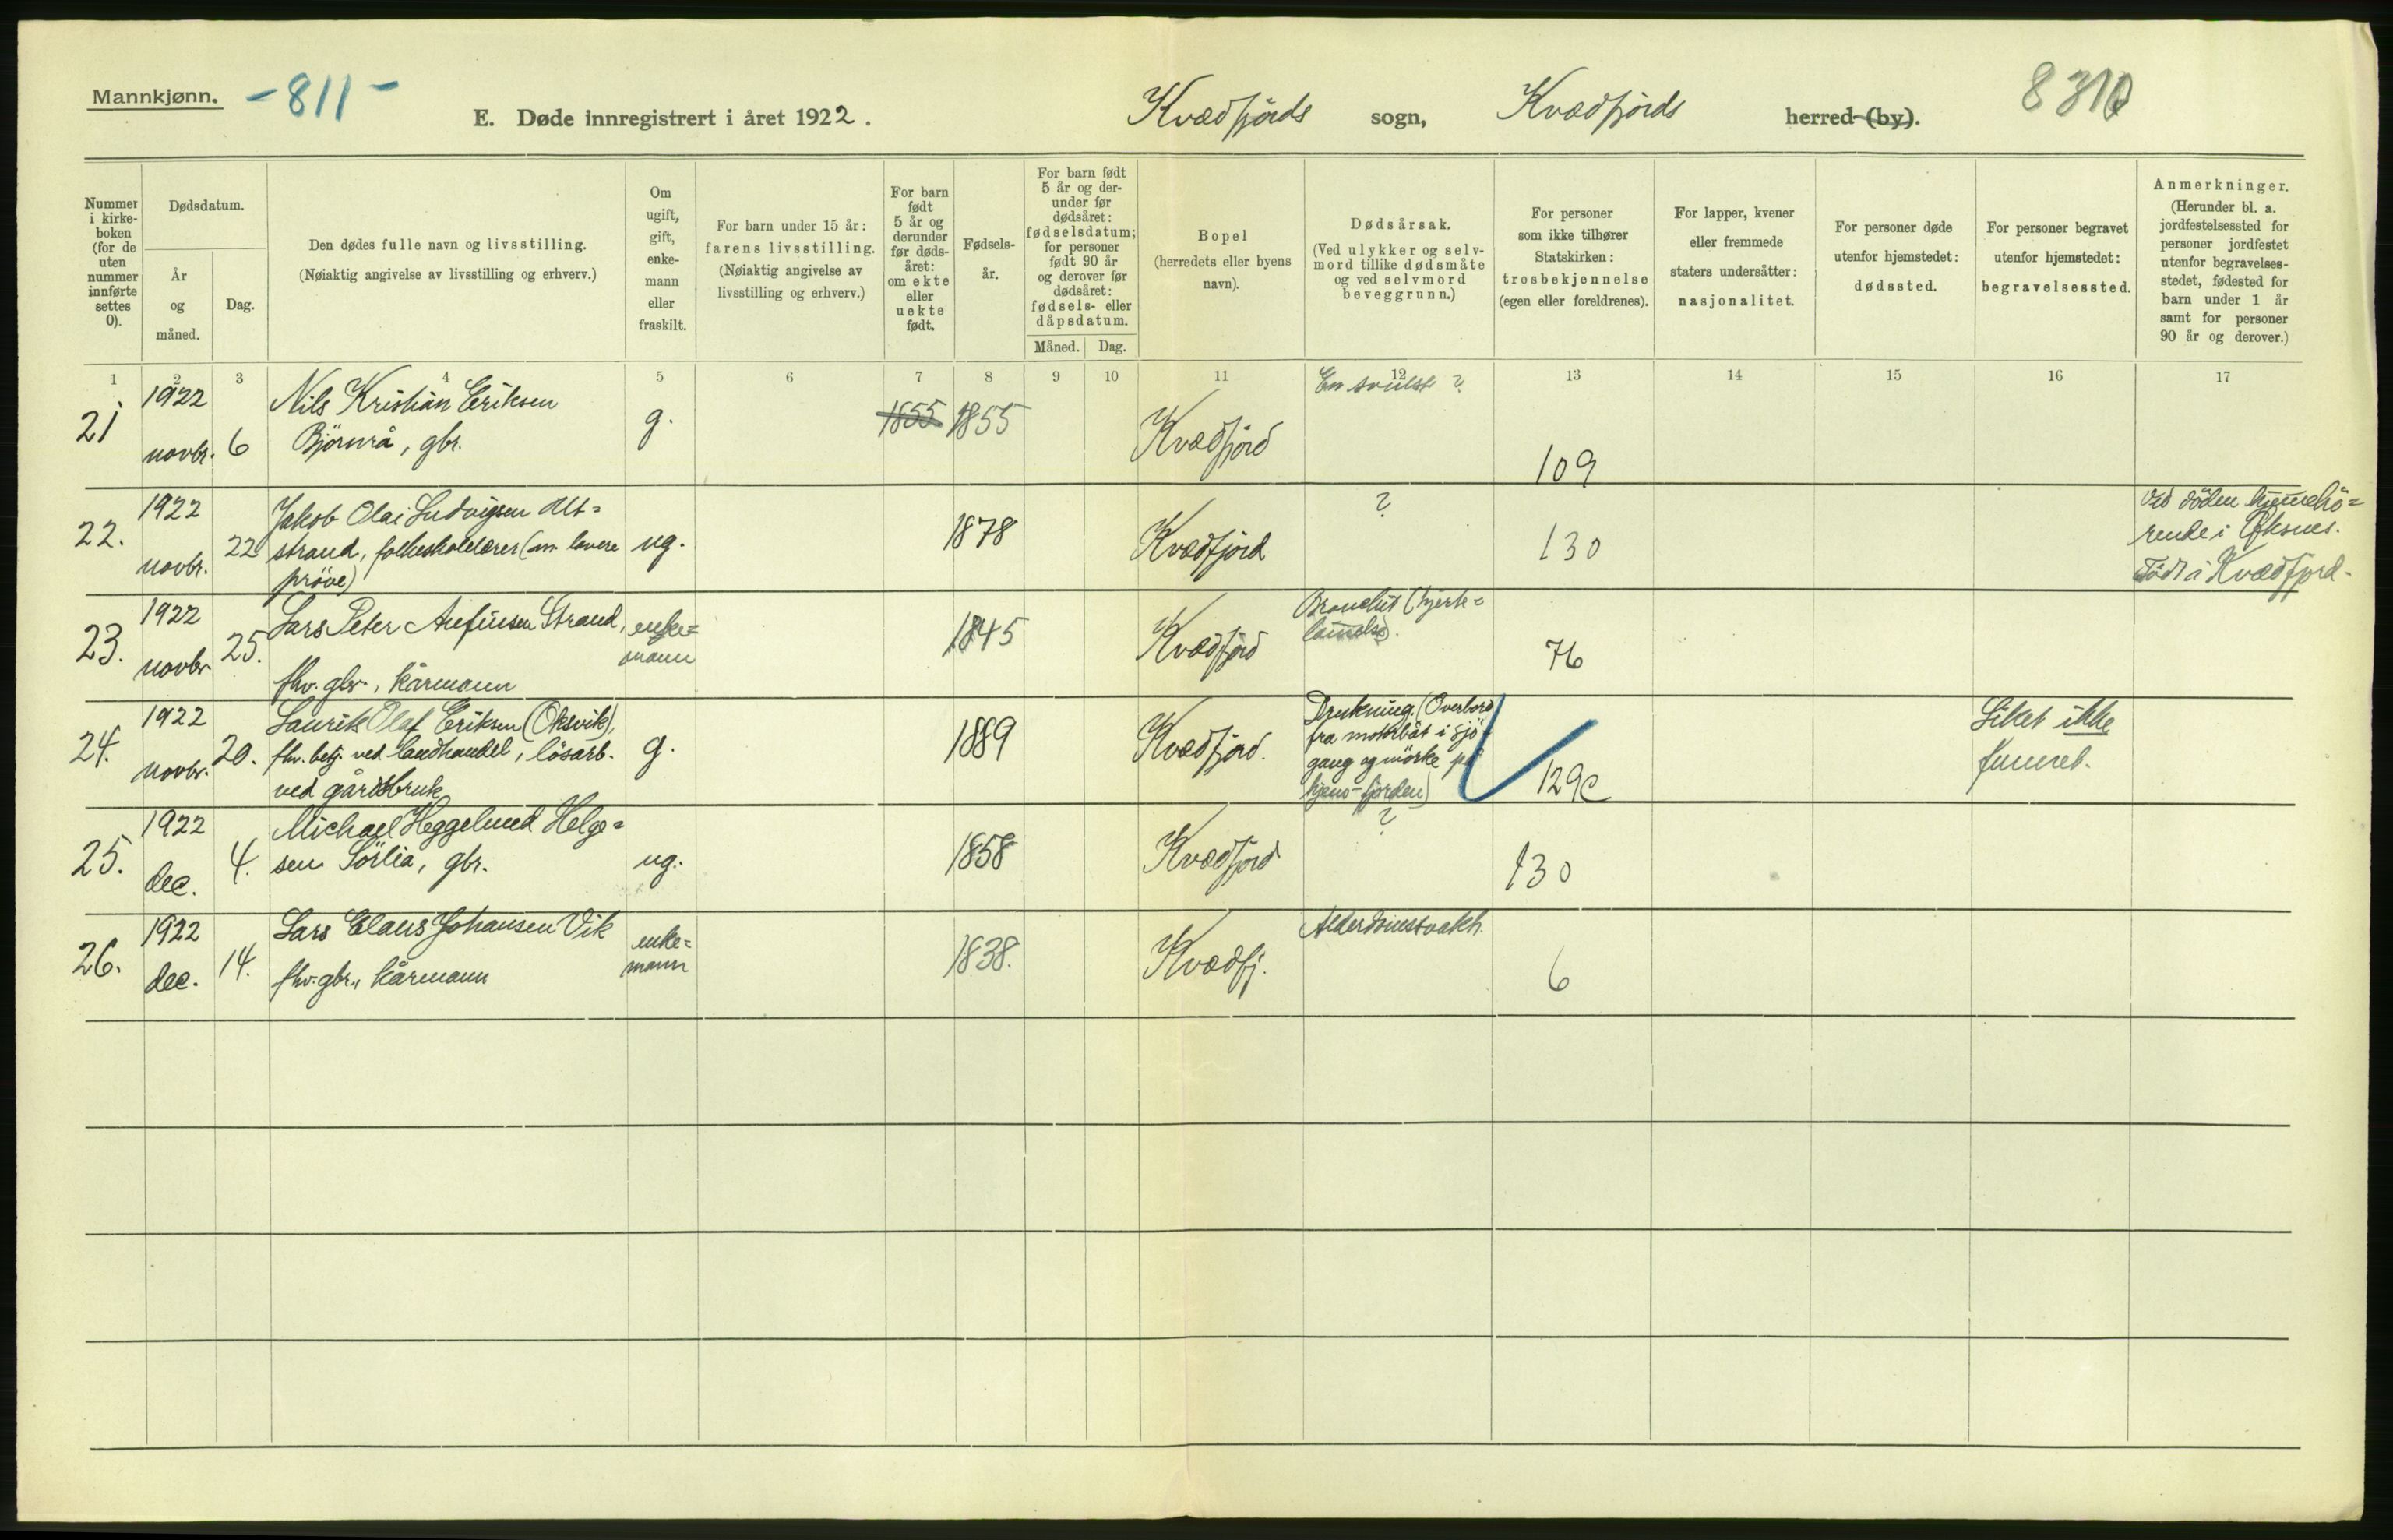 Mannkjønn. -811-
E. Døde innregistrert i året 1922. Kvædfjörds sogn, Kvædfjörds herred (by). 8310
Nummer i kirkeboken (for de uten nummer innførte settes 0).
Dødsdatum.
År og måned.
Dag.
Den dødes fulle navn og livsstilling.
(Nøiaktig angivelse av livsstilling og erhverv.)
Om ugift, gift, enkemann eller fraskilt.
For barn under 15 år:
farens livsstilling.
(Nøiaktig angivelse av
livsstilling og erhverv.)
For barn født 5 år og derunder før dødsåret: om ekte eller uekte født.
Fødselsår.
For barn født
5 år og der-
under før
dødsåret:
fødselsdatum;
for personer
født 90 år
og derover før
dødsåret:
fødsels- eller
dåpsdatum.
Måned. Dag.
Bopel
(herredets eller byens
navn).
Dødsårsak.
(Ved ulykker og selv-
mord tillike dødsmåte
og ved selvmord
beveggrunn.)
For personer
som ikke tilhører
Statskirken:
trosbekjennelse
(egen eller foreldrenes).
For lapper, kvener
eller fremmede
staters undersåtter:
nasjonalitet.
For personer døde
utenfor hjemstedet:
dødssted.
For personer begravet
utenfor hjemstedet:
begravelsessted.
Anmerkninger.
(Herunder bl. a.
jordfestelsessted for
personer jordfestet
utenfor begravelses-
stedet, fødested for
barn under 1 år
samt for personer
90 år og derover.)
1 2 3 4 5 6 7 8 9 10 11 12 13 14 15 16 17
21 1922 novbr. 6 Nils Kristian Eriksen
Björnrå, gbr. g. 1855 1855 Kvædfjörd En svulst ? 109
22. 1922 novbr. 22 Jakob Olai Ludvigsen Alt=
strand, folkeskolelærer (m. lavere
pröve) ug. 1878 Kvædfjord ? 130 Ved döden hjemmehö=
rende i Öksnes.
Född i Kvædfjord.
23. 1922 novbr 25. Lars Peter Arefinsen Strand,
fhv. gbr., kårmann enke=
mann 1845 Kvædfjörd Bronchit (hjerte=
lammelse). 76
24. 1922 novbr. 20. Laurits Olaf Eriksen (Oksvik),
fhv. betj. ved landhandel, lösarb.
ved gårdsbruk g. 1889 Kvædfjord. Drukning. (Overbord
fra motorbåt i sjö-
gang og mörke på
129c Liket ikke
funnet.
25. 1922 dec. 4. Michael Heggelund Helge=
sen Sörlia, gbr. ug. 1858 Kvædfjord ? 130
26. 1922 dec. 14. Lars Claus Johansen Vik
fhv. gbr., kårmann enke=
mann 1838. Kvædfj. Alderdomssvakh. 6